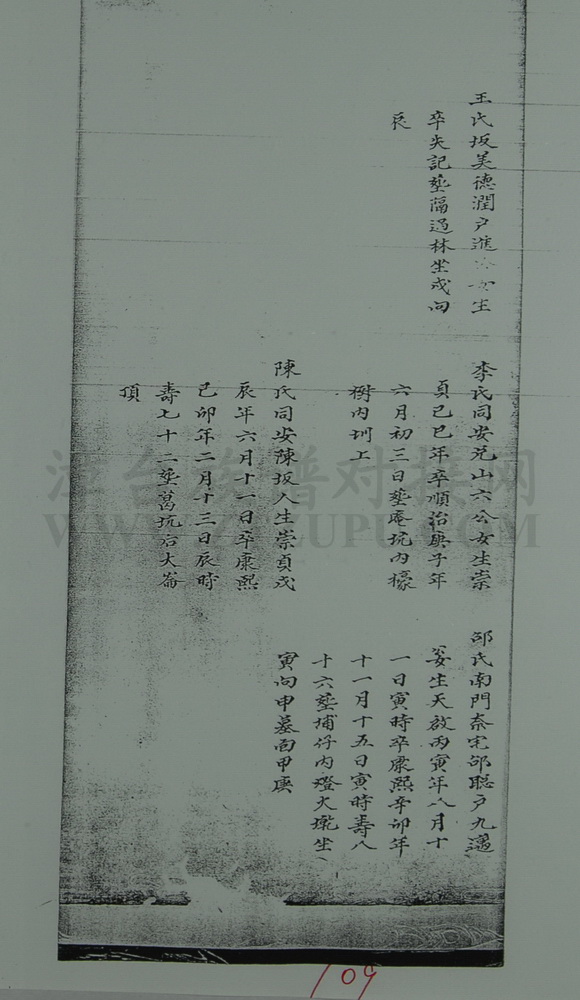 王氏坂美德潤户進 女生
卒失記塟隔過林坐戌向
辰
李氏同安兑山六公女生崇
貞己巳年卒順治庚子年
六月初三日塟庵坑内檺
樹内圳上
陳氏同安陳坂人生崇貞戊
辰年六月十一日卒康熙
己卯年二月十三日辰時
壽七十二塟葛坑后大崙
頂
邹氏南門奈宅邹聪户九邁
妾生天啟丙寅年八月十
一日寅時卒康熙辛卯年
十一月十五日寅時壽八
十六塟埔仔内燈火墘坐
寅向申墓面甲庚
109
台族譜对接网
WWW.ZUPU